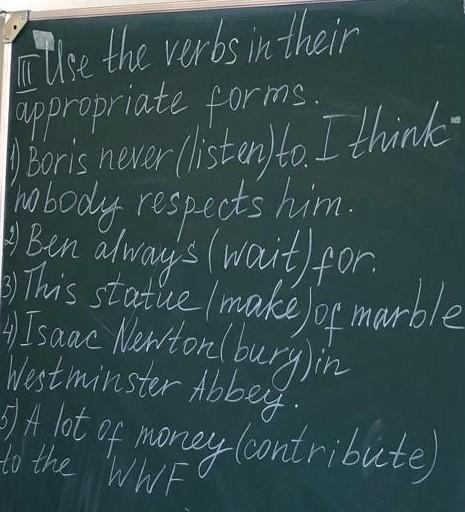 III Use the verbs in their
appropriate forms.
1) Boris never (listen) to. I think
nobody respects him.
2) Ben always (wait) for.
3) This statue (make) of marble
4) Isaac Newton (bury) in
Westminster Abbey.
5) A lot of money (contribute)
to the WWF